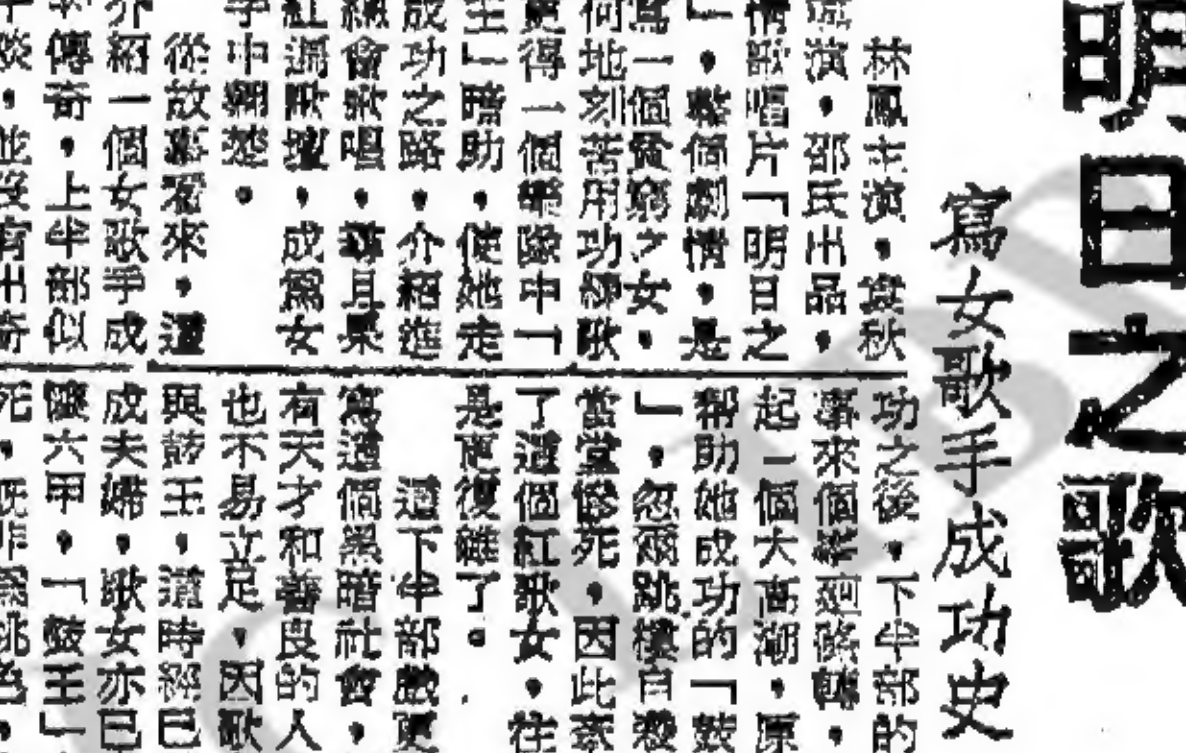 明日之歌
寫女歌手成功史
林鳳主演,
秋
導演,邵氏出品,
情歌唱片「明日之
」,整個劇情,是
寫一個貧窮之女,
何地刻苦用功練歌
更得一個樂隊中「
王」暗助,使她走
成功之路,介紹進
總會歌唱,
月果
紅遍歌壇,成爲女
手中翹楚。
從故事看來,這
介紹一個女歌手成
傳奇,上半部似
淡,並沒有出奇
功之後,下半部的
事來個峰廻路轉,
起一個大高潮,原
帮助她成功的「鼓
」,忽爾跳樓自殺
當堂慘死,因此
了這個紅歌女,往
是更復雜了。
這下半部戲更
寫這個黑暗社會,
有天才和善良的人
也不易立足,因歌
與鼓王,這時經已
成夫婦,歌女亦已
懷六甲,「鼓王」
死,旣非爲桃色,